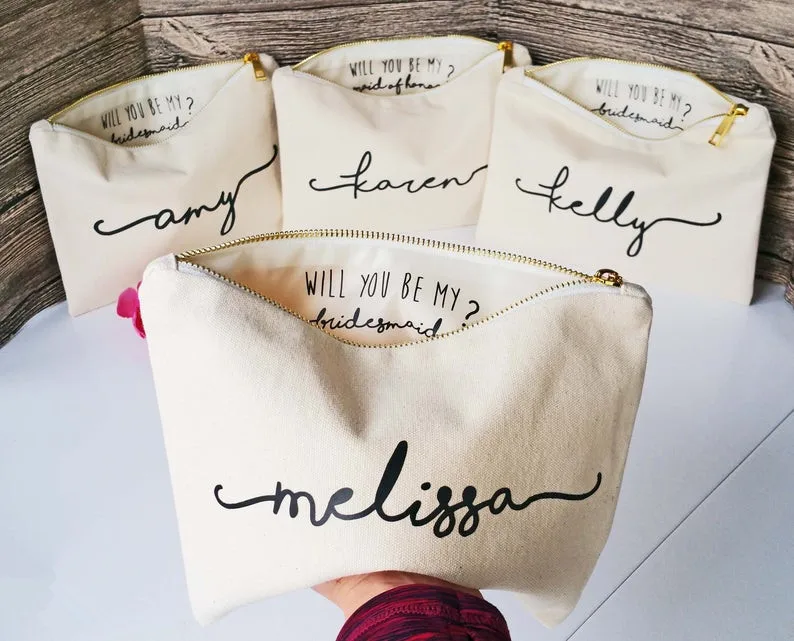 WILL YOU BE MY
bridesmaid?
amy
WILL YOU BE MY
maid of honor?
karen
WILL YOU BE MY
bridesmaid?
kelly
WILL YOU BE MY
bridesmaid?
melissa